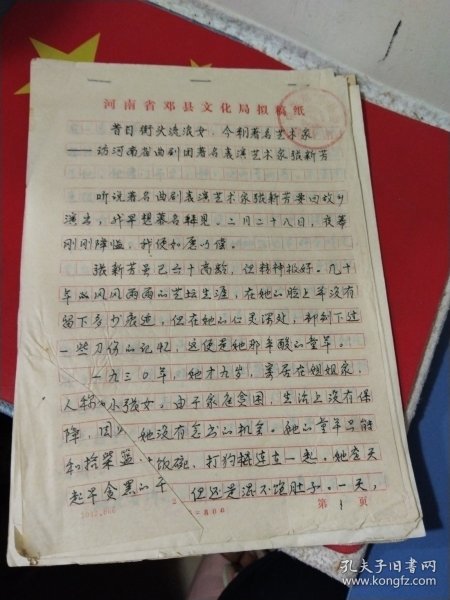 河南省邓县文化局拟稿纸
昔日街头流浪女，今朝著名艺术家
——访河南省曲剧团著名表演艺术家张新芳
听说著名曲剧表演艺术家张新芳要回故乡
演出，我早想慕名拜见。二月二十八日，夜幕
刚刚降临，我便如愿以偿。
张新芳虽已六十高龄，但精神极好。几十
年的风风雨雨的艺坛生涯，在她的脸上并没有
留下多少痕迹，但在她的心灵深处，却刻下过
一些刀伤的记忆，这便是她那辛酸的童年。
一九三〇年，她才九岁，寄居在姐姐家，
人称 小张女。由于家庭贫困，生活上没有保
障，因 她没有念书的机会。她的童年只能
和拾柴篮 饭碗，打狗棒连在一起。她每天
起早贪黑的干 但还是混不饱肚子。一天，
第 1 页
孔夫子旧书网
www.kongfz.com